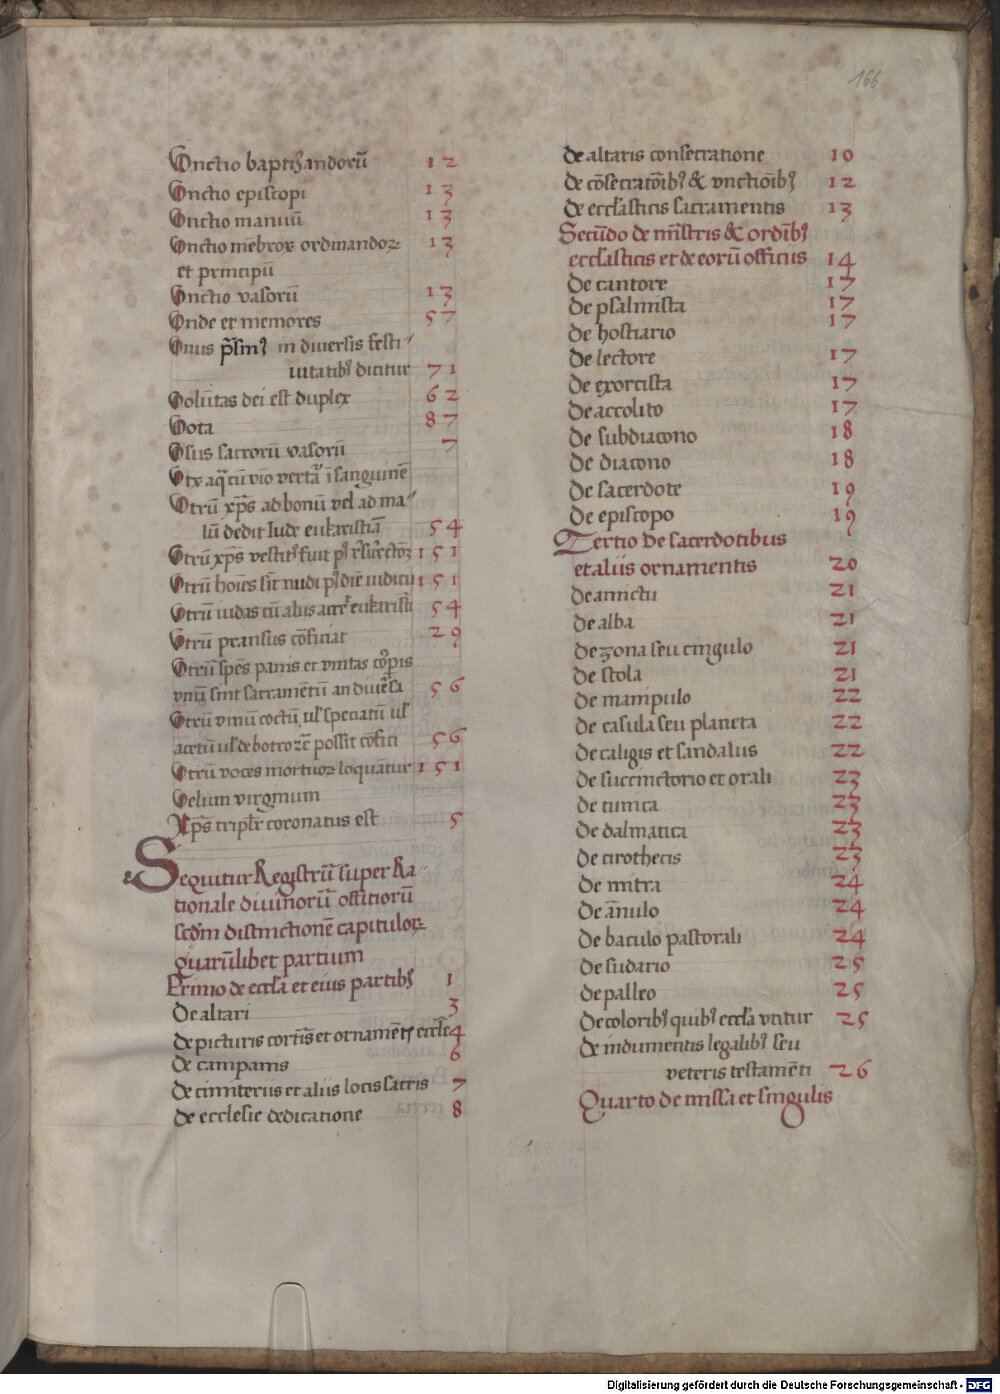 166
Vnctio baptiʒandorū 12
Vnctio episcopi 13
Vnctio manuū 13
Vnctio mēbroꝝ ordinandoꝝ 13
et principū
Vnctio vasorū 13
Vnde et memores 57
Vnus p̄sm9 in diuersis festi
uitatibꝫ dicitur 71
Volūtas dei est duplex 62
Vota 87
Vsus sacrorū vasorū 7
Vtrū xp̄s ad bonū vel ad ma
lū dedit Iude eukaristiā 54
Vtrū xp̄s vestitꝰ fuit pꝰ r̄surrectōꝫ 151
Vtrū hoīes sīt nudi pꝰ diē iudicii 151
Vtrū iudas cū aliis accē eukaristī 54
Vtrū pransus cōficiat 29
Vtrū sp̄es panis et vnitas cōrp̄is
vnū sint sacramētū an diuēsa 56
Vtrū vinū coctū ul' speciatū ul'
acetū ul' de botro rē possit cōfici 56
Vtrū voces mortuoꝝ loquātur 151
Velum virginum
Xp̄s tripl'r coronatus est 5
Sequitur Registrū super Ra
tionale diuinorū offitiorū
scd̄m distinctionē capituloꝝ
quarūlibet partium
Primo de eccl'a et eius partibꝫ 1
De altari 3
de picturis cortīs et ornamētꝭ eccl'e 4
de campanis 6
de cimiteriis et aliis locis sacris 7
de ecclesie dedicatione 8
de altaris consecratione 10
de cōsecratōībꝫ & vnctiōībꝫ 12
de eccl'asticis sacramentis 13
Secūdo de mīstris & ordībꝫ
eccl'asticis et de eorū officiis 14
De cantore 17
De psalmista 17
De hostiario 17
De lectore 17
De exorcista 17
De accolito 17
De subdiacono 18
De diacono 18
De sacerdote 19
De episcopo 19
Tertio de sacerdotibus
et aliis ornamentis 20
De amictu 21
De alba 21
De zona seu cingulo 21
De stola 21
De manipulo 22
De casula seu planeta 22
De caligis et sandaliis 22
De succinctorio et orali 23
De tunica 23
De dalmatica 23
De cirothecis 23
De mitra 24
De ānulo 24
De baculo pastorali 24
De sudario 25
De palleo 25
De coloribꝫ quibꝫ eccl'a vtitur 25
De indumentis legalibꝫ seu
veteris testamēti 26
Quarto de missa et singulis
Digitalisierung gefördert durch die Deutsche Forschungsgemeinschaft - DFG